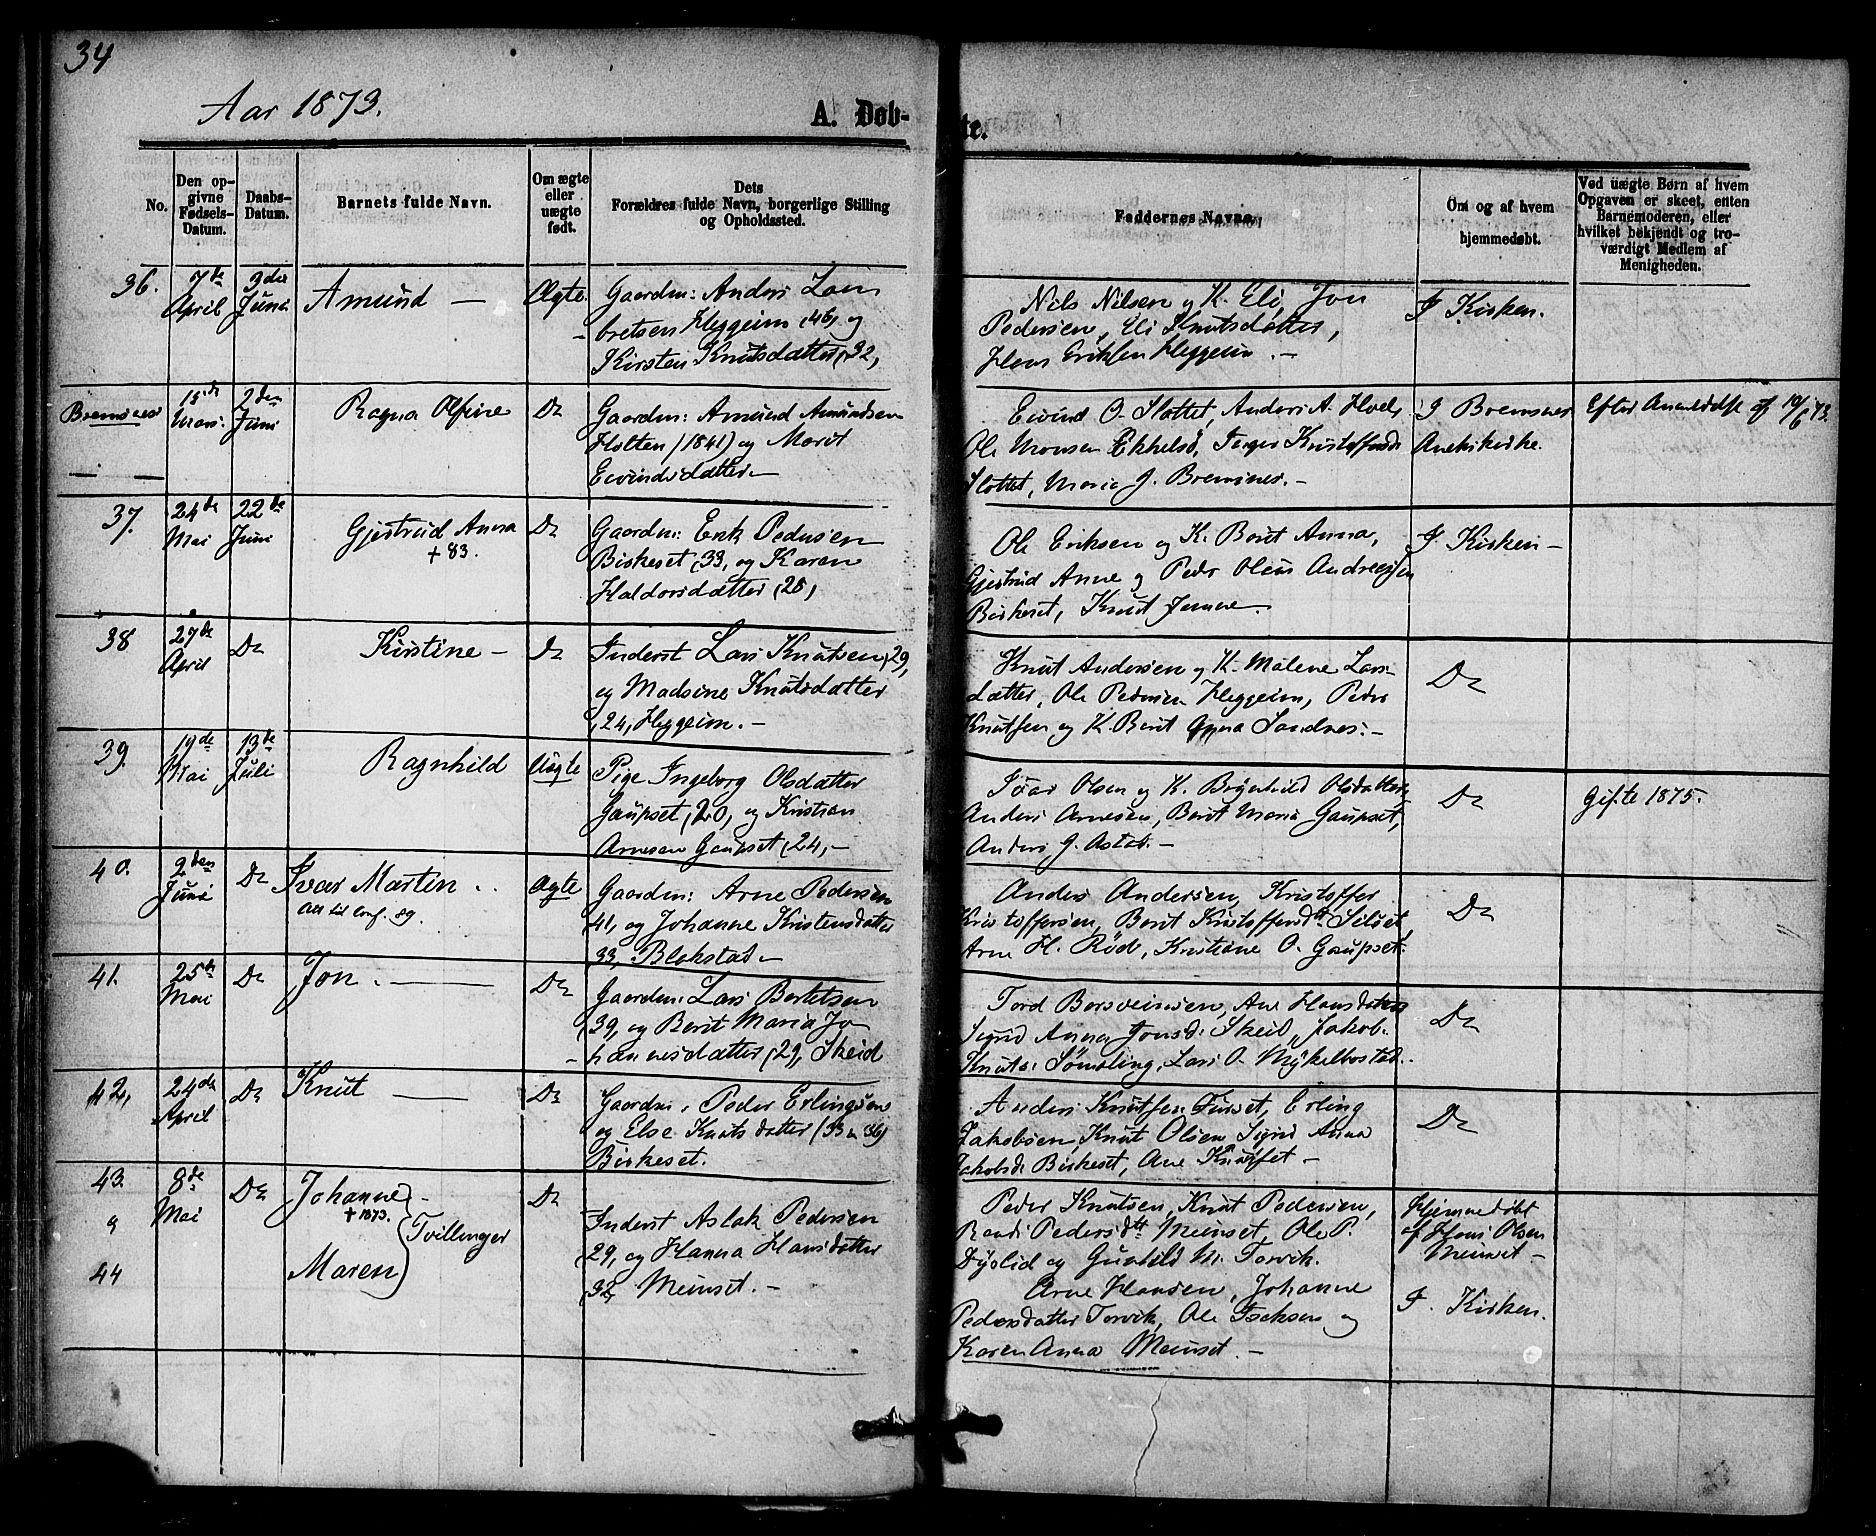 34
Aar 1873.
A. Døb-
te.
No.
Den op-
givne
Fødsels-
Datum.
Daabs-
Datum.
Barnets fulde Navn.
Om ægte
eller
uægte
født.
Dets
Forældres fulde Navn, borgerlige Stilling
og Opholdssted.
Faddernes Navne.
Om og af hvem
hjemmedøbt.
Ved uægte Børn af hvem
Opgaven er skeet, enten
Barnemoderen, eller
hvilket bekjendt og tro-
værdigt Medlem af
Menigheden.
36.
7de
April
2den
Juni
Amund —
Ægte
Gaardm: Anders Lam
bretsen Heggeim (46, og
Kirsten Knutsdatter (32,
Nils Nilsen og K. Eli, Jon
Pedersen, Eli Knutsdatter,
Hans Eriksen Heggeim. —
I Kirken.
Bremsnes
15de
Mars:
2den
Juni
Ragna Olfine
Do
Gaardm: Amund Amundsen
Holten (1841) og Marit
Eivindsdatter —
Eivind O. Slottet, Anders A. Hoel,
Ole Monsen Ekkelsø, Inger Kristoffersdr
Slottet, Maria J. Bremsnes. —
I Bremsnes
Anekskirke.
Efter Anmeldelse af 10/6 73.
37.
24de
Mai
22de
Juni
Gjertrud Anna
+ 83.
Do
Gaardm: Erik Pedersen
Birkeset (33, og Karen
Haldorsdatter (25,
Ole Eriksen og K. Berit Anna,
Gjertrud Anne og Peder Olaus Andreassen
Birkeset, Knut
I Kirken —
38
27de
April
Do
Kirstine —
Do
Inderst Lars Knutsen (29,
og Madsine Knutsdatter
(24, Heggeim. —
Knut Andersen og K. Malene Lars-
datter, Ole Pedersen Heggeim, Peder
Knutsen og K. Berit Anna Sandnes. —
Do
39.
19de
Mai
13de
Juli
Ragnhild
Uægte
Pige Ingeborg Olsdatter
Gaupset (20, og Kristian
Arnesen Gaupset (24, —
Ivar Olsen og K. Brynhild Olsdatter,
Anders Arnesen, Berit Maria Gaupset,
Anders J. Astad. —
Do
Gifte 1875.
40.
2den
Juni
Do
Ivar Martin
Att til Conf. 89.
Ægte
Gaardm: Arne Pedersen
41, og Johanne Kristensdatter
33, Blekstad —
Anders Andersen, Kristoffer
Kristoffersen, Berit Kristoffersdtr Silset,
Arne H. Rød, Kristiane O. Gaupset.
Do
41.
25de
Mai
Do
Jon. —
Do
Gaardm: Lars Bertelsen
(39, og Berit Maria Jo
hannesdatter (29, Skeid
Tord Bersveinsen, Ane Hansdatter,
Sigrid Anna Jonsd: Skeid, Jakob
Knuts: Sømeling, Lars O. Mykelbostad.
Do
42,
24de
April
Do
Knut —
Do
Gaardm: Peder Erlingsen
og Else Knutsdatter (33 & 36)
Birkeset.
Anders Knutsen Furset, Erling
Jakobsen, Knut Olsen, Sigrid Anna
Jakobsd: Birkeset, Ane —
Do
43.
og
44
8de
Mai
Do
Johanne —
+ 1873.
Tvillinger
Maren
Do
Inderst Aslak Pedersen
(29, og Hanna Hansdatter
(32, Meinset. —
Peder Knutsen, Knut Pedersen,
Randi Pedersdtr Meinset, Ole P.
Dyslid og Gunhild M. Torvik.
Arne Hansen, Johanne
Pedersdatter Torvik, Ole Isaksen og
Karen Anna Meinset. —
Hjemmedøbt
af Hans Olsen
Meinset —
I. Kirken.